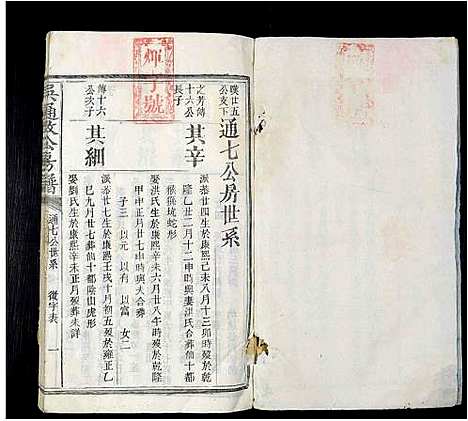 輝字號
通七公房世系
其辛
派恭廿四生於康熙己未八月十三卯時歿於乾
隆乙丑二月十二申時與妻洪氏合葬仙十都
猴猻坑蛇形
娶洪氏生於康熙辛未六月廿八午時歿於乾隆
甲申正月廿七申時合葬
子三 以元 以有 以富 女二
其細
傅十六
公次子
派恭廿七生於康熙壬戌十月初五歿於雍正乙
巳九月廿七葬仙十都除山虎形
娶劉氏生於康熙辛未正月歿葬未詳
通七公世系 復字表 一